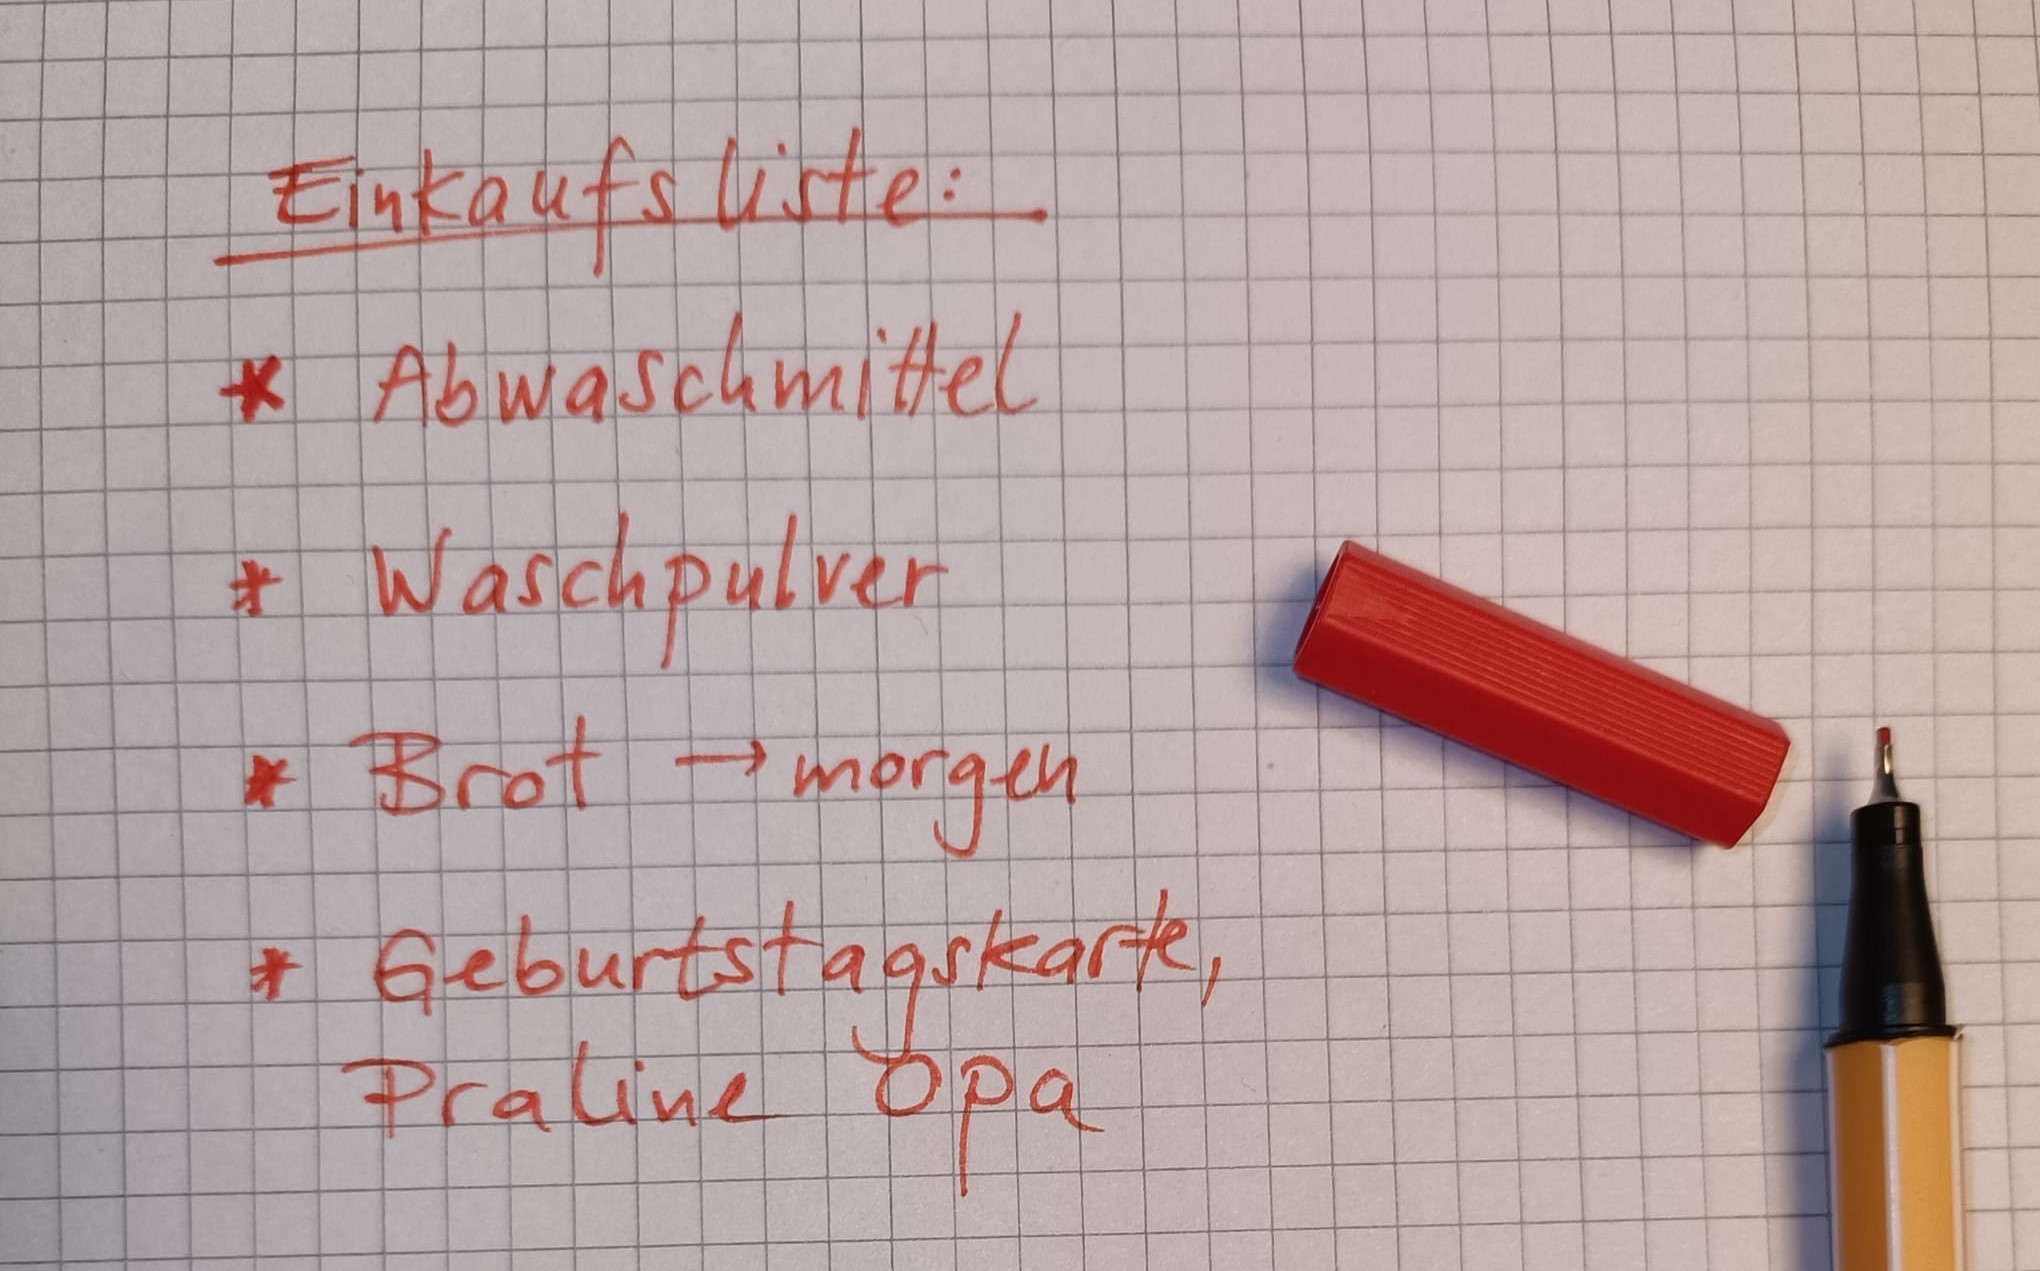 Einkaufsliste:
* Abwaschmittel
* Waschpulver
* Brot → morgen
* Geburtstagskarte,
Praline Opa